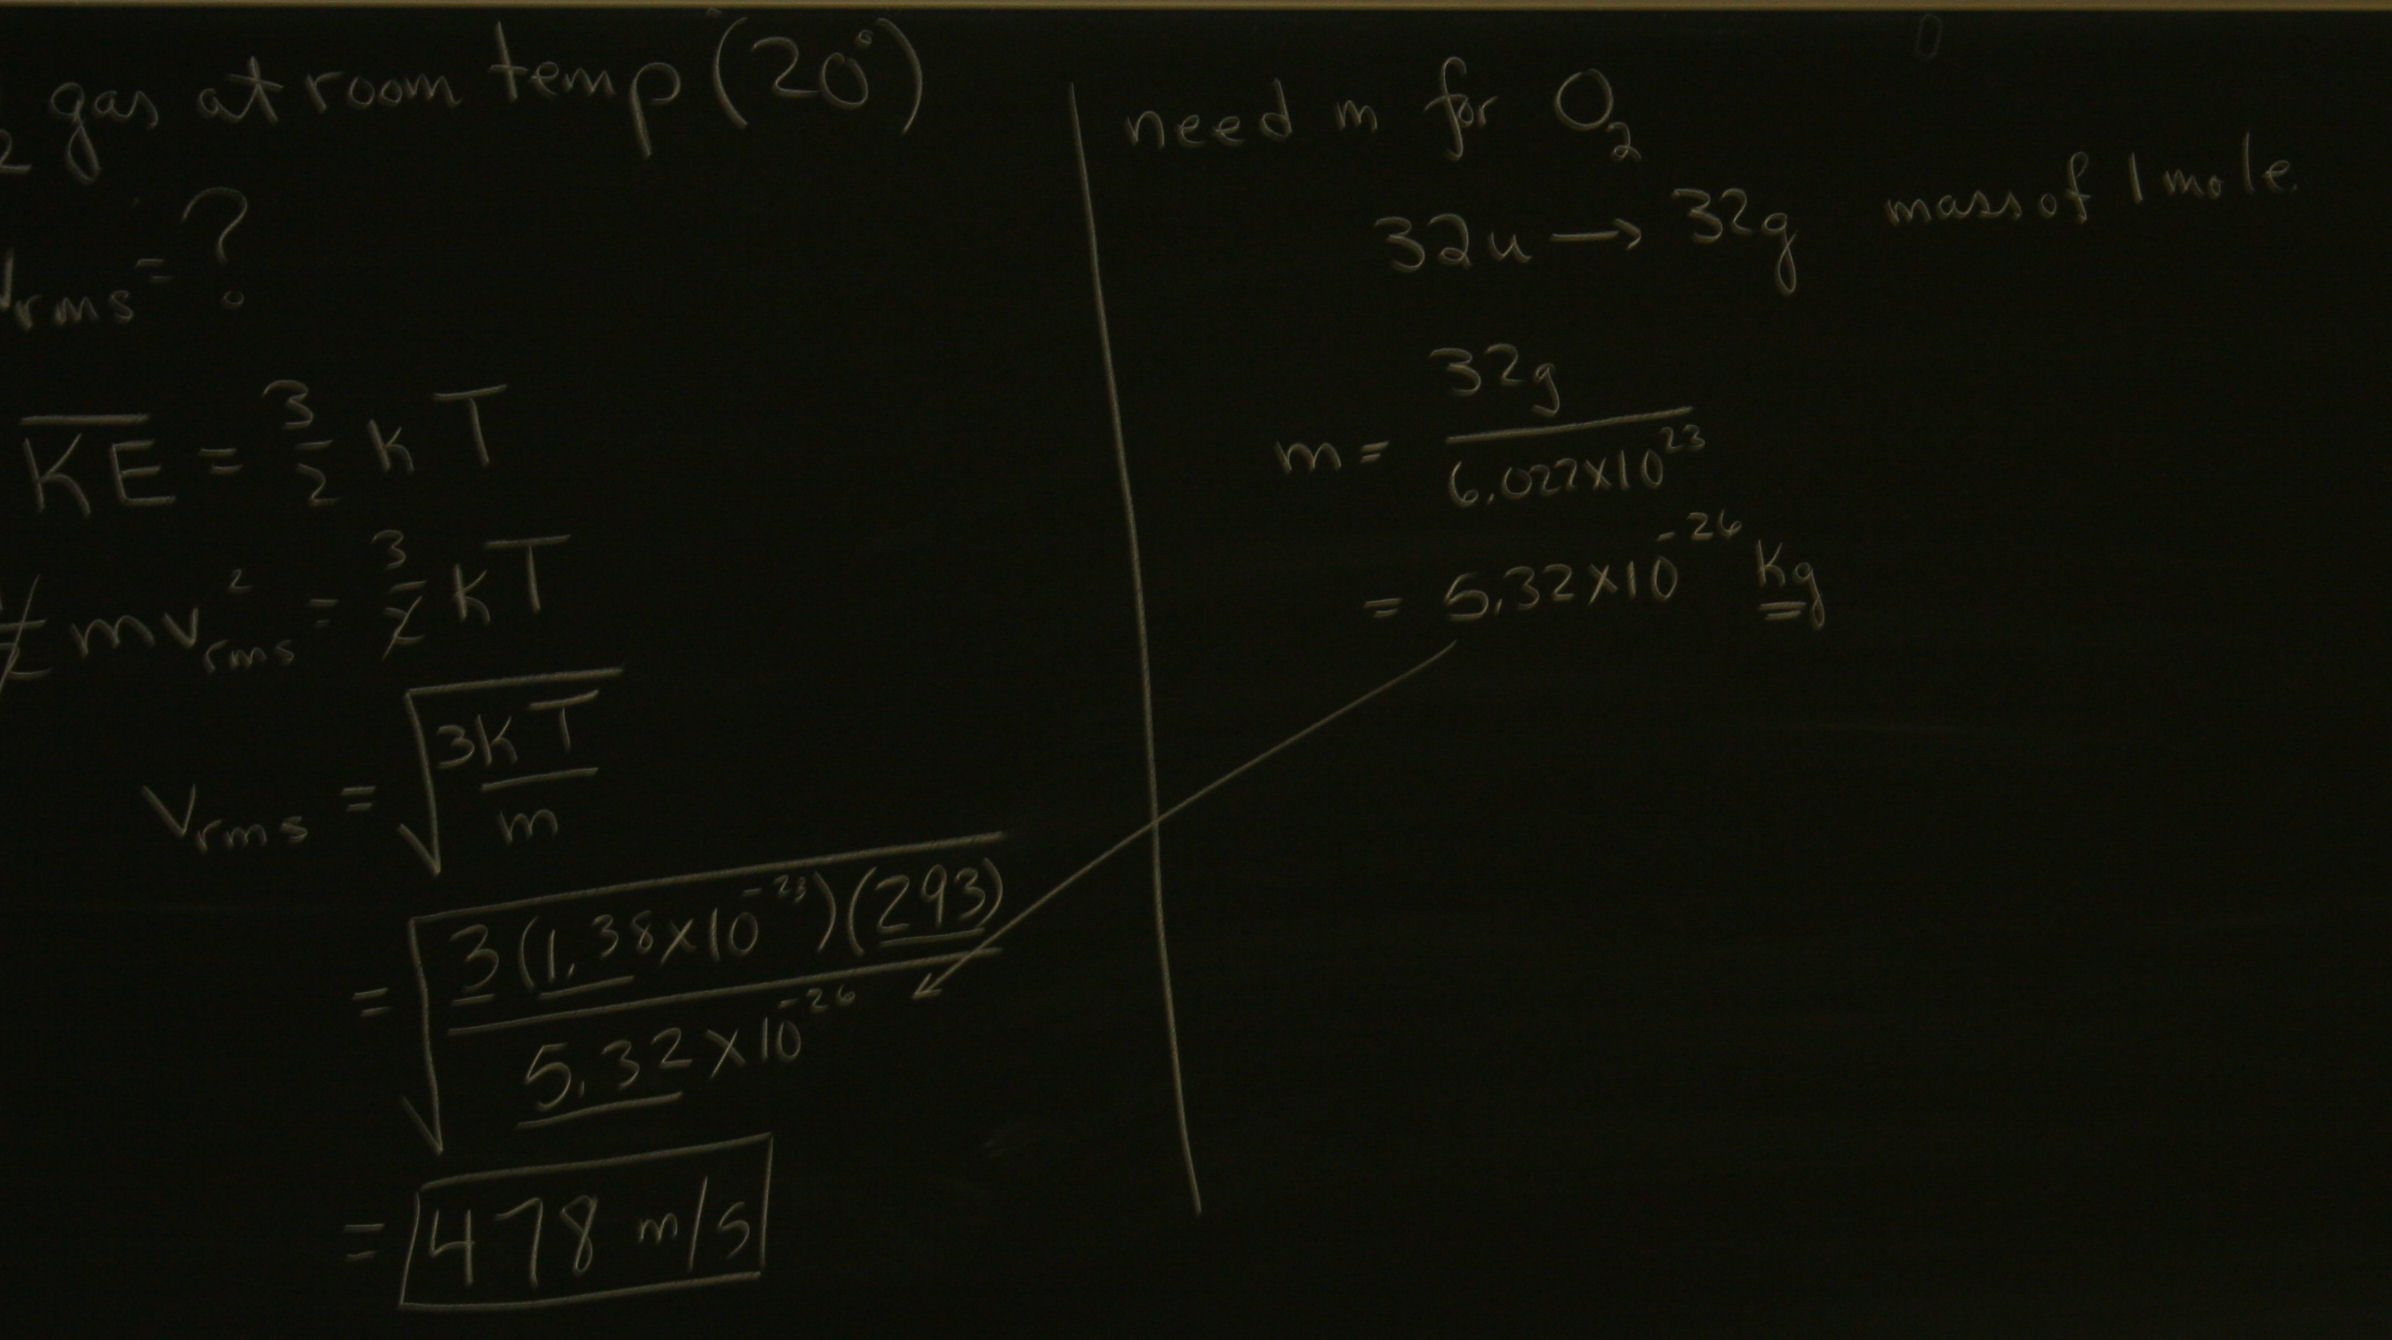 2 gas at room temp (20°)
Vrms = ?
KE = 3/2 kT
mv²rms = 3/2 kT
Vrms = √(3kT/m)
= √(3(1.38×10⁻²³)(293)/5.32×10⁻²⁶)
= 478 m/s
need m for O₂
32u → 32g mass of 1 mole
m = 32g/6.022×10²³
= 5.32×10⁻²⁶ kg